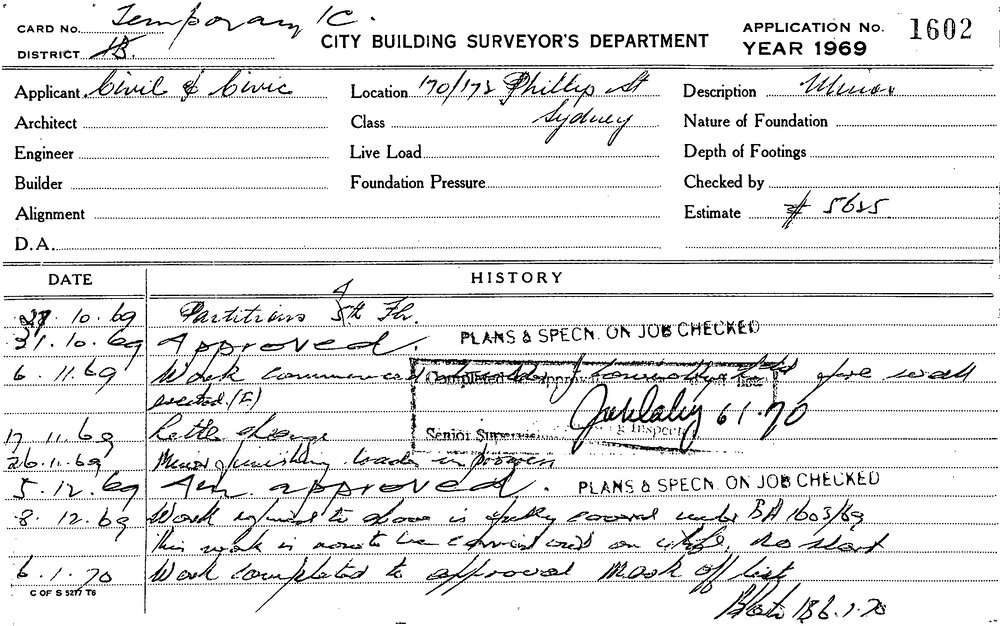 CARD No. Temporary 1C.
DISTRICT
CITY BUILDING SURVEYOR'S DEPARTMENT
APPLICATION No. 1602
YEAR 1969
Applicant Civil & Civic
Location 170/172 Phillip St
Sydney
Description Minor
Architect
Class
Nature of Foundation
Engineer
Live Load
Depth of Footings
Builder
Foundation Pressure
Checked by
Alignment
Estimate $ 5625
D.A.
DATE
HISTORY
28.10.69 Partitions 5th Flr.
31.10.69 Approved. PLANS & SPECN. ON JOB CHECKED
6.11.69 Work commenced fire wall
erected. (E)
Completed
61.70
Senior
17.11.69 Little change
26.11.69 Minor finishing in progress
5.12.69 Am. approved. PLANS & SPECN. ON JOB CHECKED
8.12.69 Work referred to above is covered under BA 1603/69
This work is now to be carried out on No start
6.1.70 Work completed to approval Mark off list
6.1.70
C OF S 5277 T6